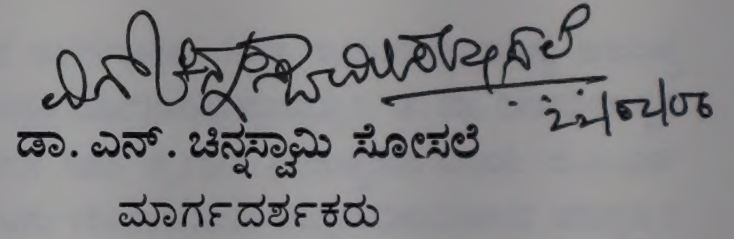 ಎನ್ ಚಿನ್ನಸ್ವಾಮಿ ಸೋಸಲೆ
ಡಾ. ಎನ್. ಚಿನ್ನಸ್ವಾಮಿ ಸೋಸಲೆ
ಮಾರ್ಗದರ್ಶಕರು